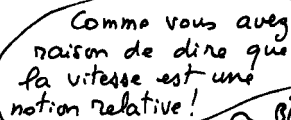 Comme vous avez
raison de dire que
la vitesse est une
notion relative!